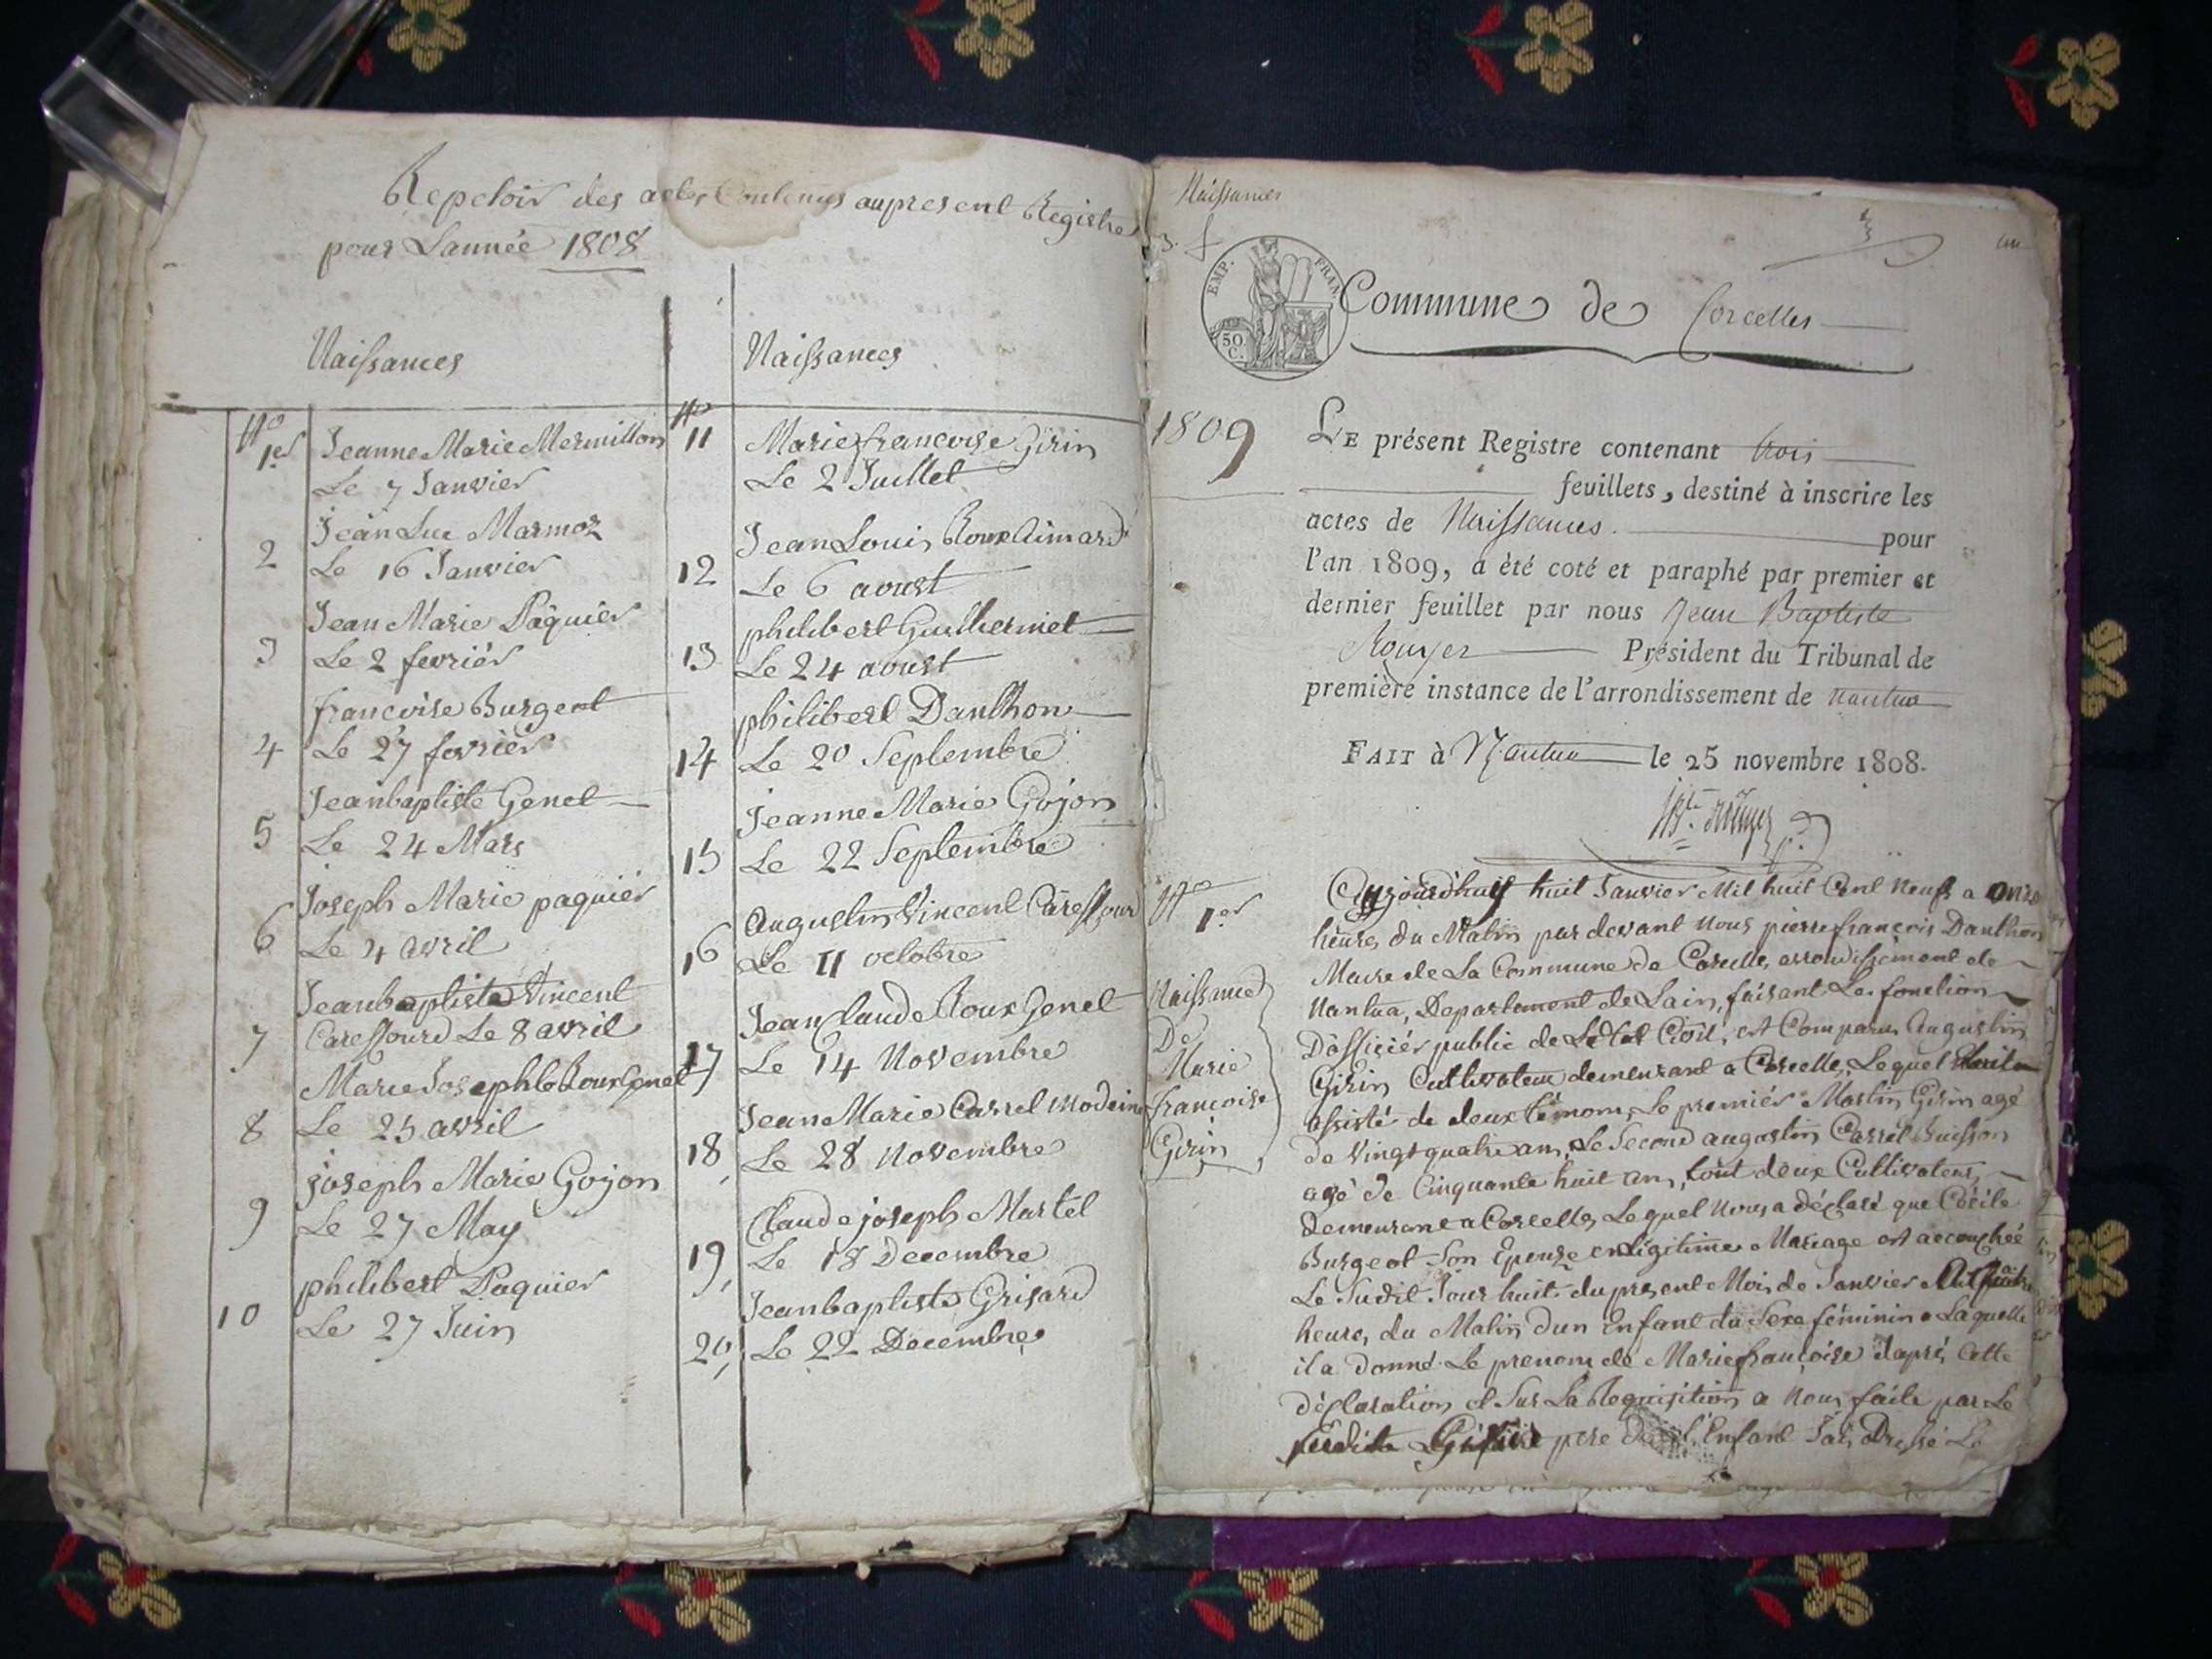 Repetoir des actes Contenus aupresent Registre
pour Lannée 1808
Naissances
No
1er Jeanne Marie Mermillon
Le 7 Janvier
Jean Luc Marmoz
2 Le 16 Janvier
Jean Marie Paquier
3 Le 2 fevrièr
francoise Burgeot
4 Le 27 fevrier
Jeanbaptiste Genet
5 Le 24 Mars
Joseph Marie paquiér
6 Le 4 avril
Jeanbaptiste Vincent
7 Caressourd Le 8 avril
Marie Josephte Rouxgenet
8 Le 25 avril
joseph Marie Gojon
9 Le 27 May
philibert Paquier
10 Le 27 Juin
Naissances
No
11 Marie francoise Girin
Le 2 Juillet
Jean Louis Roux Aimard
12 Le 6 aoust
philibert Guilhermet
13 Le 24 aoust
philibert Danthon
14 Le 20 Septembre
Jeanne Marie Gojon
15 Le 22 Septembre
Augustin Vincent Caressourd
16 Le 11 octobre
Jean Claude Roux Genet
17 Le 14 Novembre
Jean Marie Carrel Modeine
18 Le 28 Novembre
Claude joseph Martel
19, Le 18 Decembre
Jeanbaptiste Grisard
20, Le 22 Decembre
Naissances
EMP. FRAN.
50 C.
Commune de Corcelles
1809
LE présent Registre contenant trois
feuillets, destiné à inscrire les
actes de Naissances. pour
l'an 1809, a été coté et paraphé par premier et
dernier feuillet par nous Jean Baptiste
Rouyer Président du Tribunal de
première instance de l'arrondissement de nantua
FAIT à Nantua le 25 novembre 1808.
No
1.er
Naissance
De
Marie
francoise
Girin
Aujourd'huy huit Janvier Mil huit Cent Neuf a onze
heures du Matin par devant Nous pierre francois Danthon
Maire de La Commune de Corcelle, arrondissement de
Nantua, Departement de Lain, faisant Les fonction
Dofficiér public de Létat Civil, est Comparu Augustin
Girin Cultivateur demeurant a Corcelle, Lequel
assisté de deux témoins, Le premiér Martin Girin agé
de Vingt quatre ans, Le Second augustin Carrel Buisson
agé de Cinquante huit ans, tout deux Cultivateurs,
Demeurant a Corcelles Lequel Nous a déclaré que Cécile
Burgeot Son Epouse en Légitime Mariage est accouchée
Le Sudit Jour huit du present Mois de Janvier
heure, du Matin dun Enfant du Sexe féminin a Laquelle
il a Donné Le prenom de Marie françoise daprés Cette
déclaration et Sur La Requisition a Nous faite par Le
père Enfant Jai Dressé Le